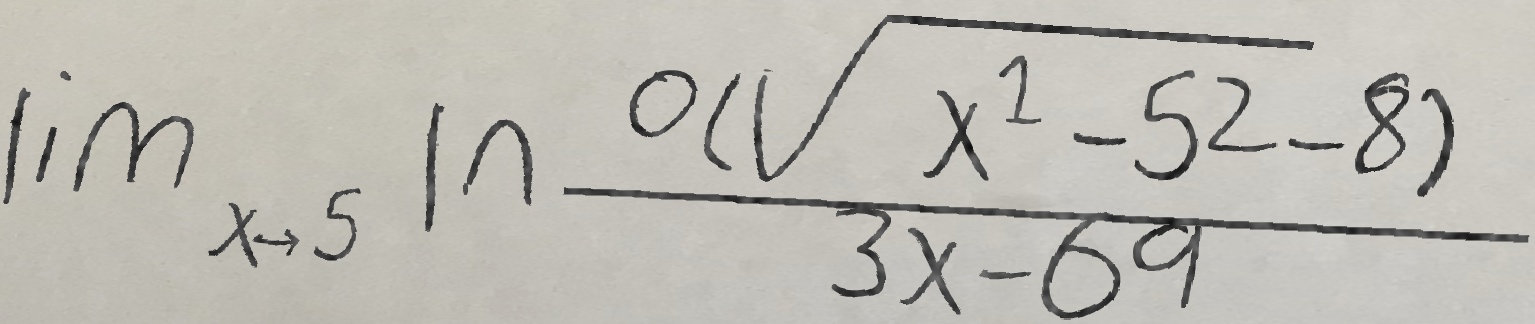 \lim_{x \to 5} \ln \frac{0(\sqrt{x^1 - 52} - 8)}{3x - 69}